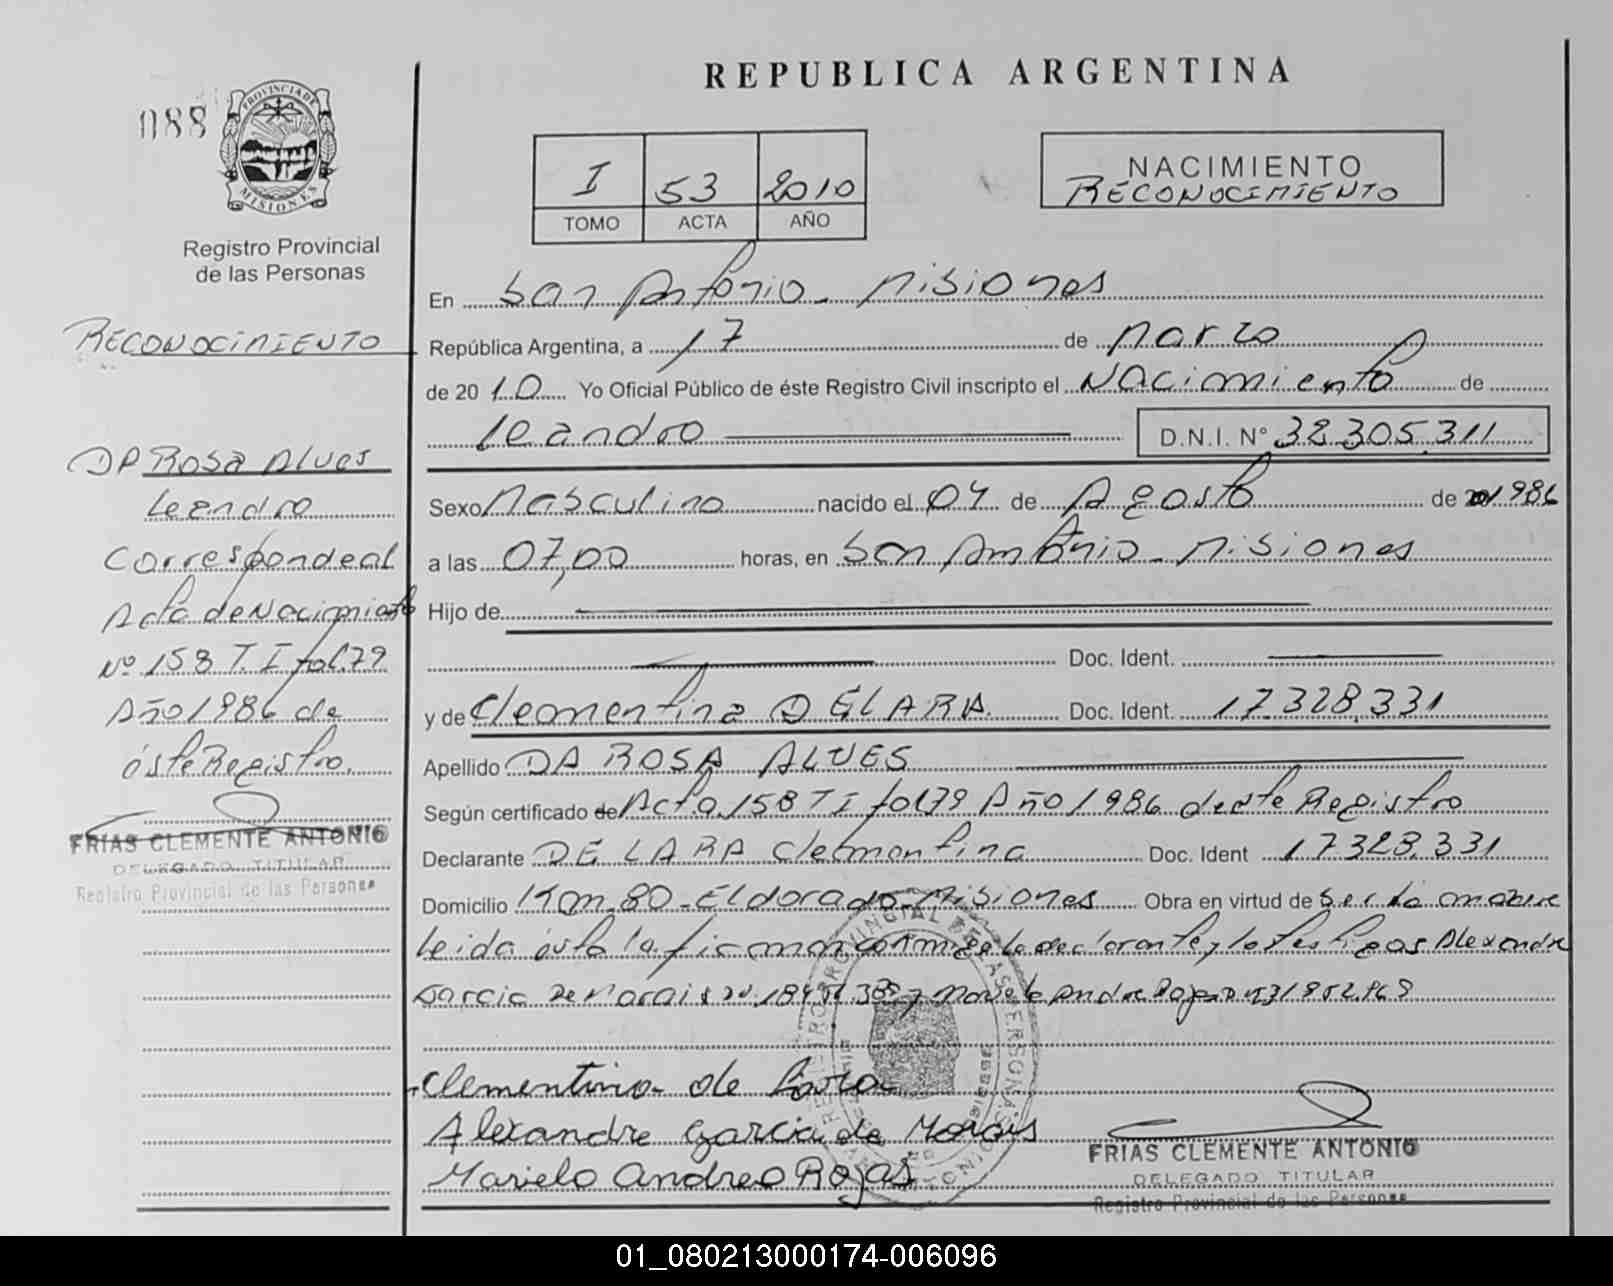 REPUBLICA ARGENTINA
088
PROVINCIA DE
MISIONES
Registro Provincial
de las Personas
I 53 2010
TOMO ACTA AÑO
NACIMIENTO
RECONOCIMIENTO
RECONOCIMIENTO
DA ROSA Alves
Leandro
Corresponde al
Acta de Nacimiento
Nº 158 T. I fol. 79
Año 1986 de
éste Registro.
FRIAS CLEMENTE ANTONIO
DELEGADO TITULAR
Registro Provincial de las Personas
En San Antonio - Misiones
República Argentina, a 17 de Marzo
de 20 10 Yo Oficial Público de éste Registro Civil inscripto el Nacimiento de
Leandro D.N.I. Nº 32.305.311
Sexo Masculino nacido el 04 de Agosto de 1986
a las 07,00 horas, en San Antonio - Misiones
Hijo de
Doc. Ident.
y de Clementina DE LARA Doc. Ident. 17.328.331
Apellido DA ROSA ALVES
Según certificado de Acta 158 T I fol 79 Año 1986 de este Registro
Declarante DE LARA Clementina Doc. Ident 17.328.331
Domicilio Km. 80 - Eldorado - Misiones Obra en virtud de ser la madre
Leida ésta la firman conmigo la declarante y los testigos Alexandre
Garcia De Morais y Rojas
Clementina de Lara
Alexandre Garcia de Morais
Marielo Andrea Rojas
FRIAS CLEMENTE ANTONIO
DELEGADO TITULAR
Registro Provincial de las Personas
01_080213000174-006096